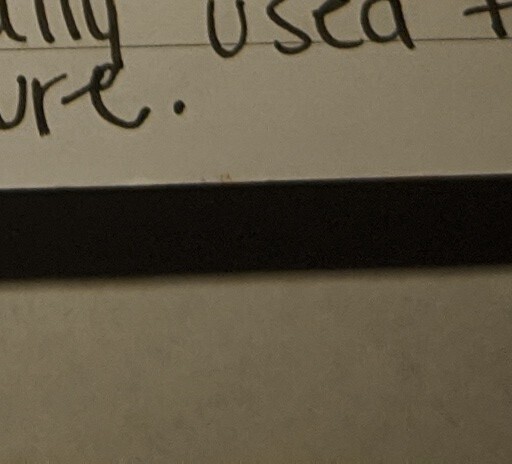 ally used t
ure.